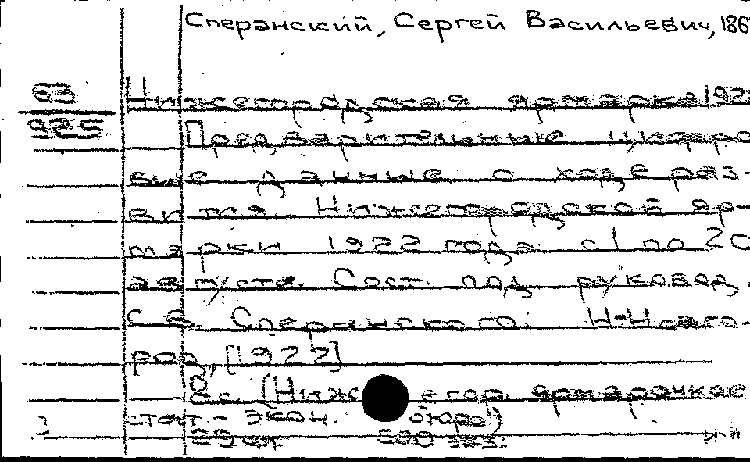 Сперанский, Сергей Васильевич, 186
83
Нижегородская ярмарка 1922
925
Предварительные цифро-
вые данные о ходе раз-
вития Нижегородской яр-
марки 1922 года с 1 по 20
августа. Сост. под руковод.
С. В. Сперанского. Н-Новго-
род, [1922]
8 с. (Нижегор. ярмарочное
стат-экон. бюро)
500 экз.